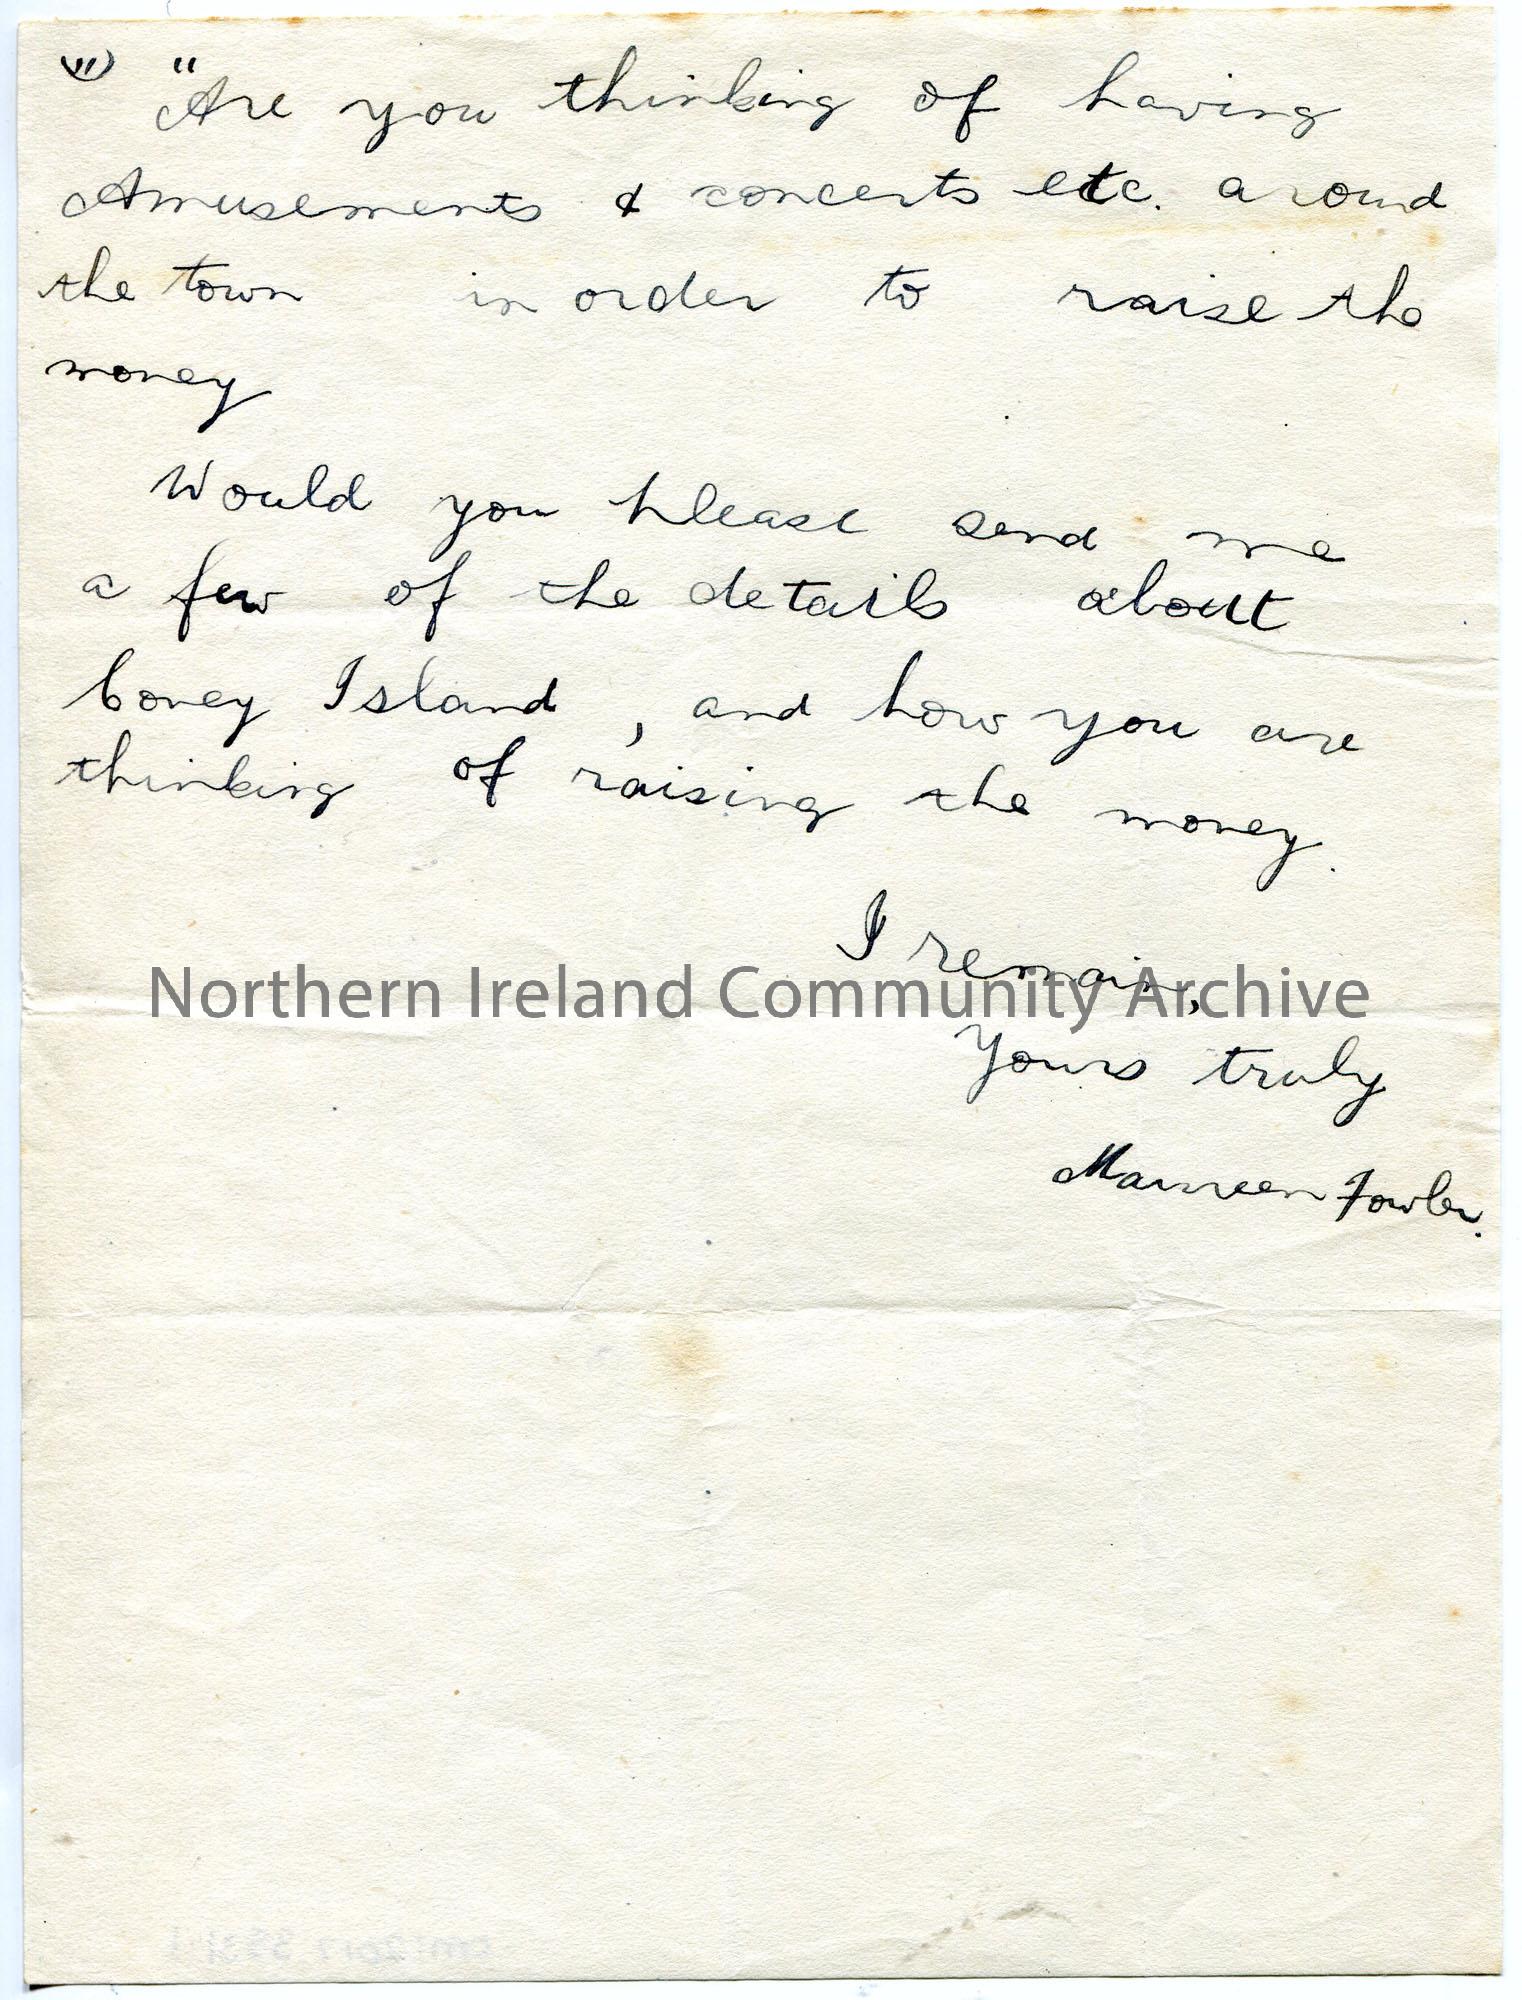 "Are you thinking of having
Amusements & concerts etc. around
the town in order to raise the
money
Would you please send me
a few of the details about
Coney Island, and how you are
thinking of raising the money.
I remain,
Northern Ireland Community Archive
Yours truly
Maureen Fowler.